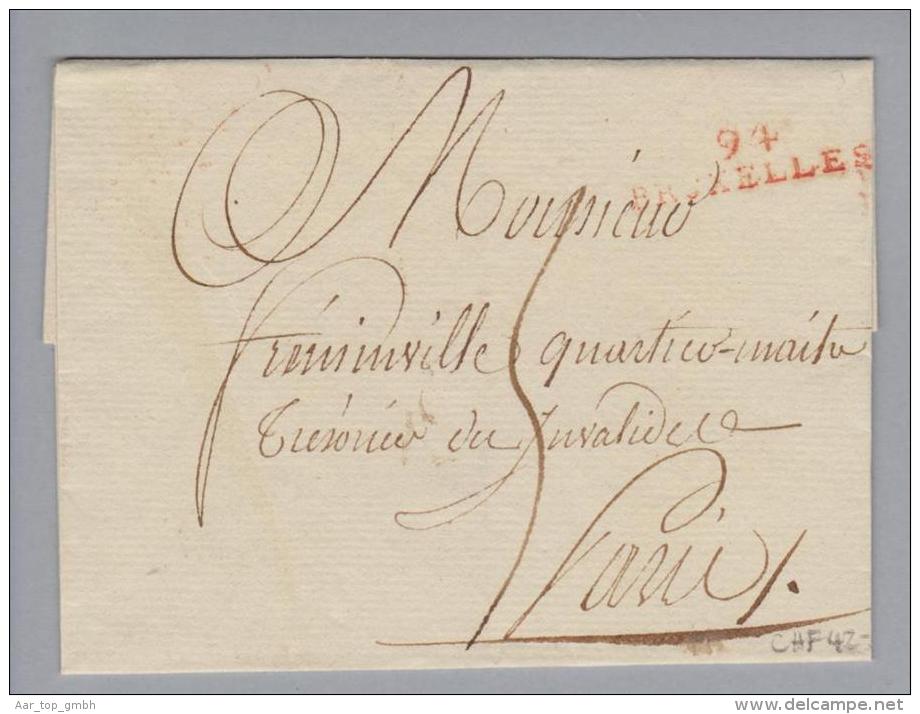 94
BRUXELLES
Monsieur
Fréminville quartier-maitre
Trésorier des Invalides
Paris
CHF 42-
Aar_top_gmbh
www.delcampe.net